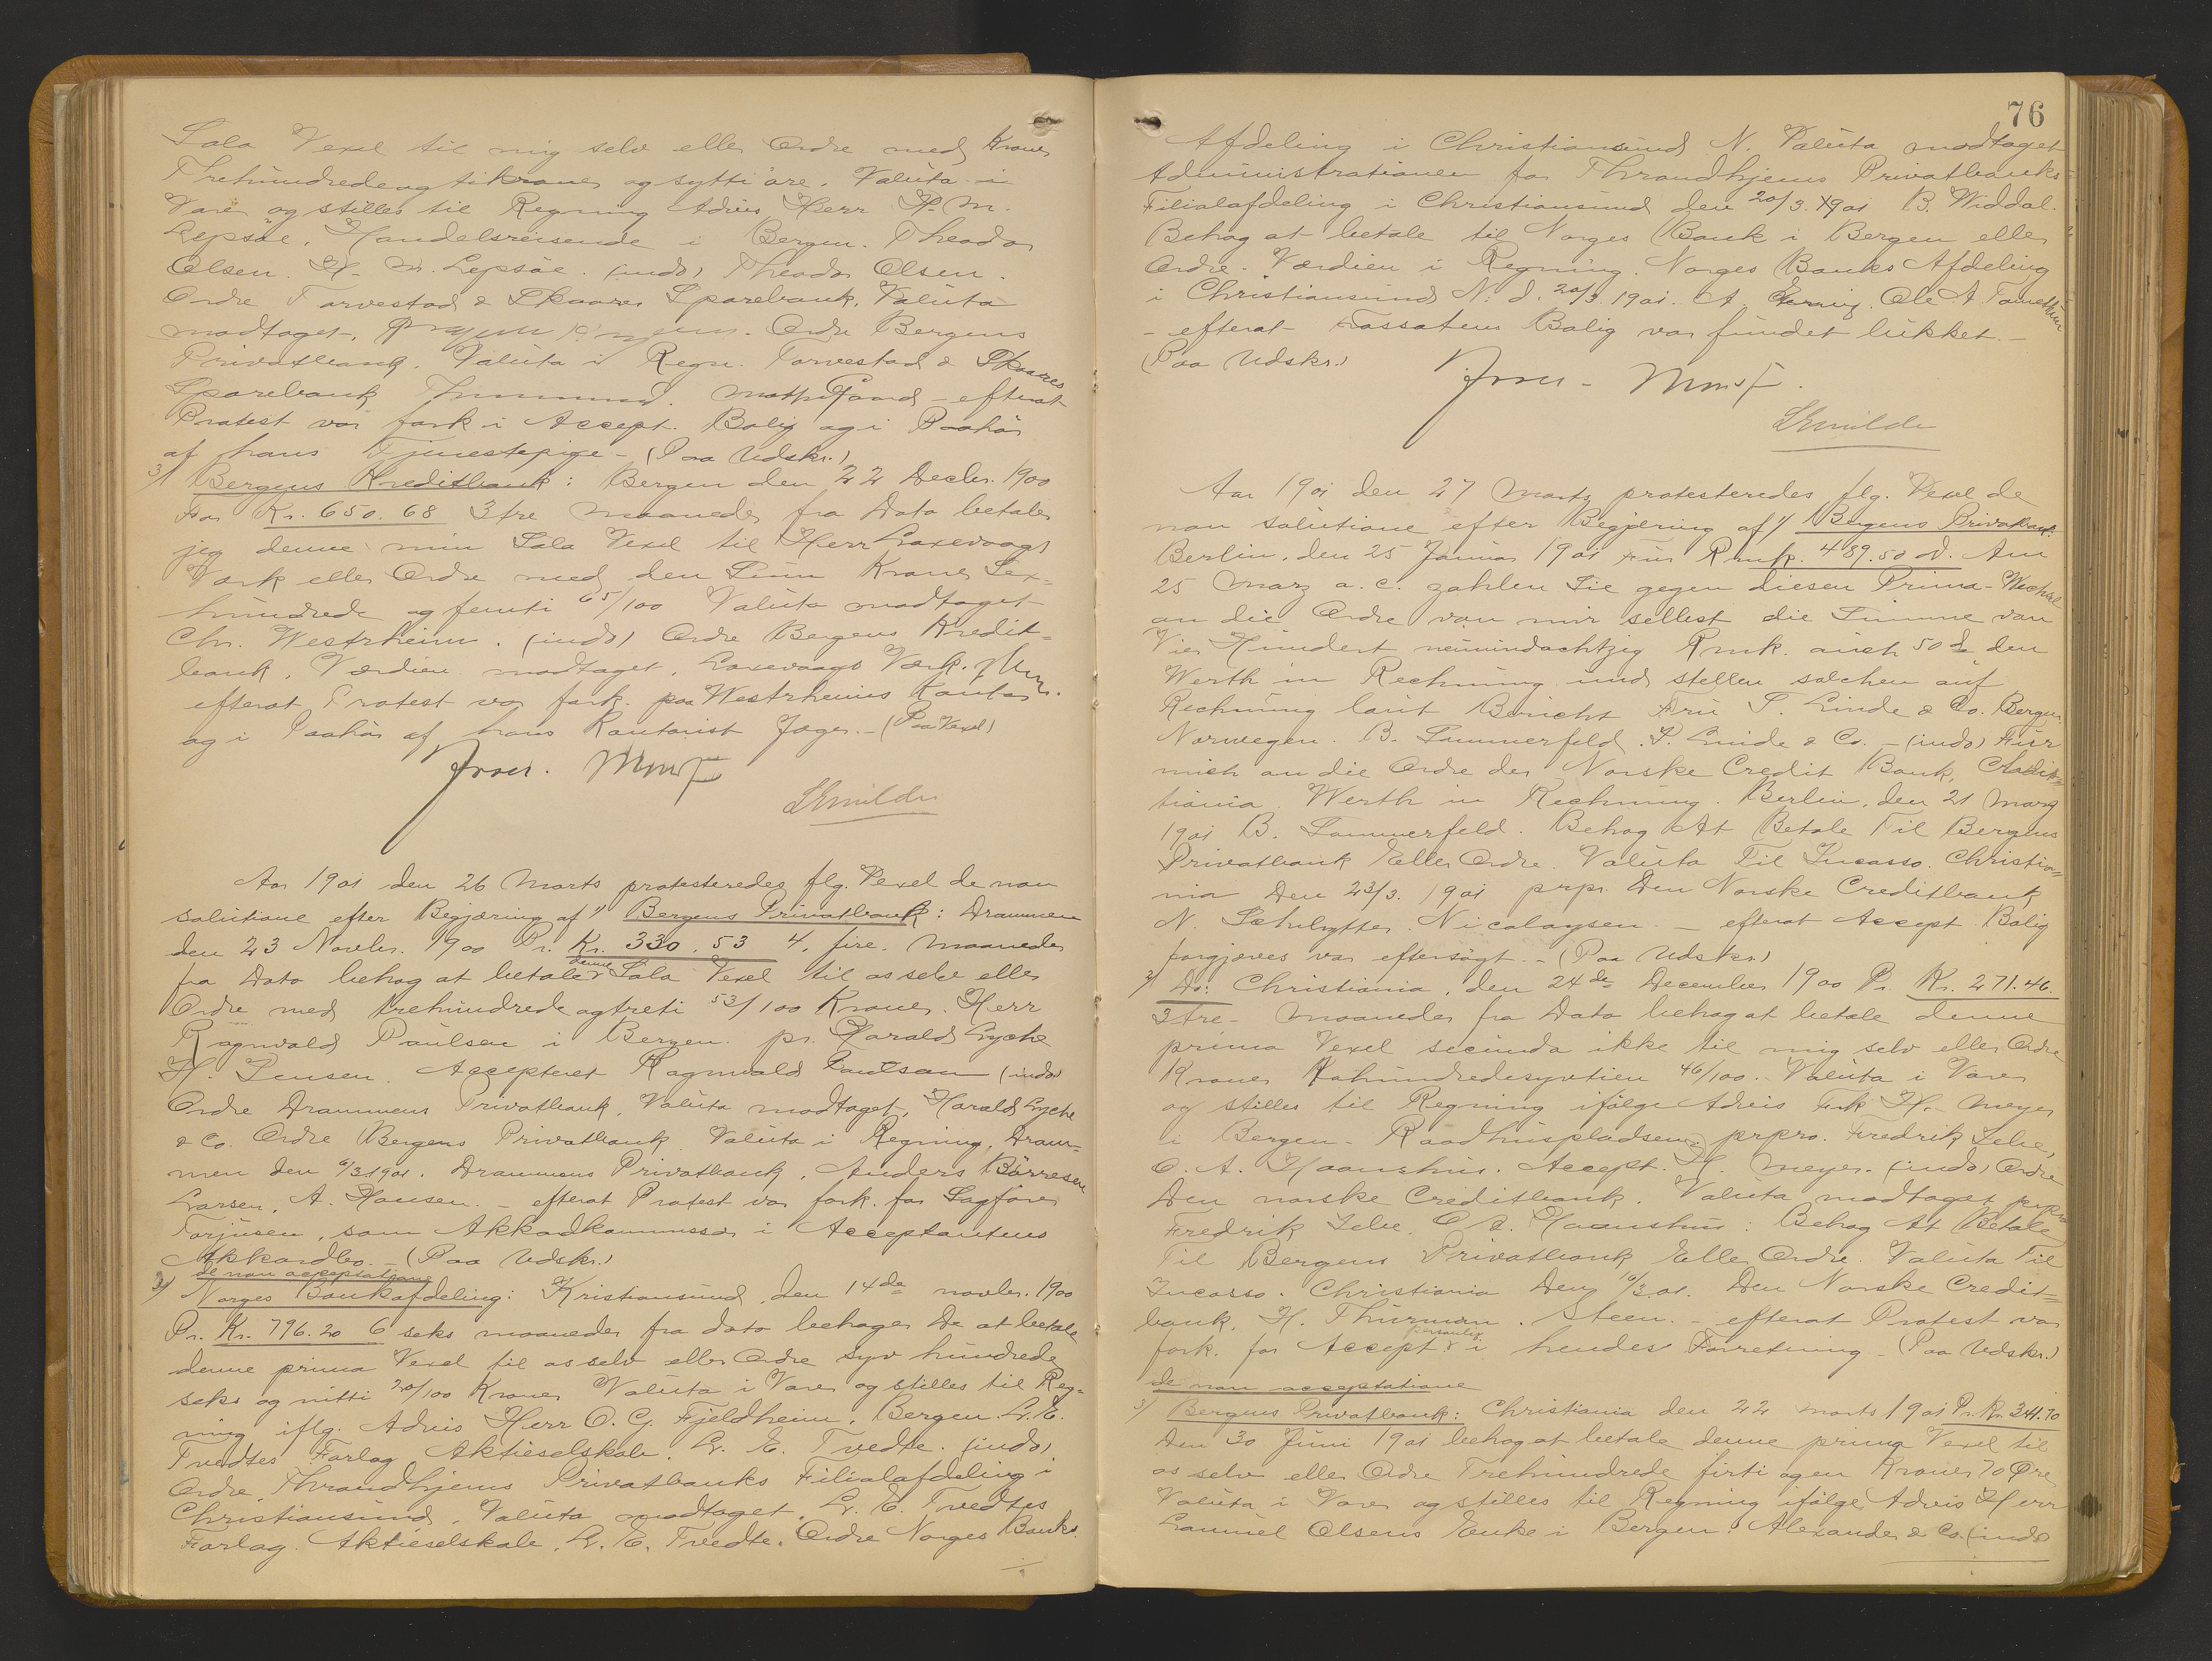 Sola Vexel til mig selv eller Ordre med Kroner
Threhundredeogtikroner og sytti øre. Valuta i
Varer og stilles til Regning Advis Herr H. M.
Lepsøe, Handelsreisende i Bergen. Theodor
Olsen. H. M. Lepsøe. (indo) Theodor Olsen.
Ordre Torvestad & Skaare Sparebank, Valuta
modtaget. Ordre Bergens
Privatbank. Valuta i Regn. Torvestad & Skaares
Sparebank - efterat
Protest var fork. i Accept. Bolig og i Paahør
af hans Tjenestepige - (Paa Udskr.)
3) Bergens Kreditbank: Bergen den 22 Decbr. 1900
For Kr. 650.68 3 tre Maaneder fra Dato betaler
jeg denne min Sola Vexel til Herr Laxevaags
Værk eller Ordre med den Sum Kroner Sex-
hundrede og femti 65/100 Valuta modtaget
Chr. Westrheim. (indo) Ordre Bergens Kredit-
bank. Værdien modtaget. Laxevaags Værk.
efterat Protest var fork. paa Westrheims Kontor
og i Paahør af hans Kontorist Jæger. - (Paa Vexel)
Aar 1901 den 26 Marts protesteredes flg. Vexel de non
solutione efter Begjæring af 1) Bergens Privatbank: Drammen
den 23 Novbr. 1900 Pr. Kr. 330.53 4, fire, Maaneder
fra Dato behag at betale denne Sola Vexel til os selv eller
Ordre med trehundrede og treti 53/100 Kroner. Herr
Ragnvald Paulsen i Bergen. pr. Harald Lyche
H. Jensen. Accepteret Ragnvald Paulsen (indo)
Ordre Drammens Privatbank, Valuta modtaget, Harald Lyche
& Co. Ordre Bergens Privatbank Valuta i Regning, Dram-
men den 6/3 1901. Drammens Privatbank, Anders Børresen
Larsen, A. Hansen. - efterat Protest var fork. for Sagfører
Torjusen, som Akkordkommissær i Acceptantens
Akkordbo. - (Paa Udskr.)
de non acceptatione
2) Norges Bankafdeling: Kristiansund, den 14de novbr. 1900
Pr. Kr. 796.20 6 seks maaneder fra dato behager De at betale
denne prima Vexel til os selv eller Ordre syv hundrede
seks og nitti 20/100 Kroner Valuta i Varer og stilles til Reg-
ning iflg. Advis Herr O. G. Fjeldheim, Bergen. L. E.
Tvedtes Forlag Aktieselskab. L. E. Tvedte. (indo)
Ordre Throndhjems Privatbanks Filialafdeling i
Christiansund, Valuta modtaget, L. E. Tvedtes
Forlag. Aktieselskab. L. E. Tvedte. Ordre Norges Banks
76
Afdeling i Christiansund N. Valuta modtaget
Administrationen for Throndhjems Privatbanks
Filialafdeling i Christiansund den 20/3. 1901 B. Widdal.
Behag at betale til Norges Bank i Bergen eller
Ordre. Værdien i Regning. Norges Banks Afdeling
i Christiansund N. d. 20/3 1901. A. Ole A
- efterat Trassatens Bolig var fundet lukket. -
(Paa Udskr.)
Aar 1901 den 27 Marts protesteredes flg. Vexel de
non solutione efter Begjæring af 1) Bergens Privatbank:
Berlin, den 25 Januar 1901 Für Rmk. 489.50 d. Am
25 März a. c. zahlen Sie gegen diesen Prima-Wechsel
an die Ordre von mir selbst die Summe von
Vier Hundert neunundachtzig Rmk. auch 50 d den
Werth in Rechnung und stellen solchen auf
Rechnung laut Bericht Fru S. Linde & Co. Bergen
Norwegen. B. Sommerfeld. S. Linde & Co. - (indo) Für
mich an die Ordre der Norske Credit Bank, Chris-
tiania. Werth in Rechnung. Berlin, den 21 März
1901 B. Sommerfeld. Behag At Betale Til Bergens
Privatbank Eller Ordre. Valuta Til Incasso. Christia-
nia Den 23/3. 1901 prpr. Den Norske Creditbank
N. Nicolaysen. - efterat Accept. Bolig
forgjæves var eftersøgt. - (Paa Udskr.)
2) Do: Christiania, den 24de December 1900 Pr. Kr. 271.46.
3 tre - Maaneder fra Dato behag at betale denne
prima Vexel secunda ikke til mig selv eller Ordre
Kroner Tohundredesyvtien 46/100. Valuta i Varer
og stilles til Regning ifølge Advis Frk H. Meyer
i Bergen - Raadhuspladsen, prpro. Fredrik Selie,
O. A. Haanshus. Accept. H Meyer. (indo) Ordre
Den norske Creditbank. Valuta modtaget prpro
Fredrik Selie. O A. Haanshus: Behag At Betale
Til Bergens Privatbank Eller Ordre. Valuta Til
Incasso. Christiania Den 16/3.01. Den Norske Credit-
bank, H. Thurman. Steen. - efterat Protest var
fork. for Accept. personlig i hendes Forretning - (Paa Udskr.)
de non acceptatione
3) Bergens Privatbank: Christiania den 22 Marts 1901 Pr. Kr. 341.70
Den 30 Juni 1901 behag at betale denne prima Vexel til
os selv eller Ordre Trehundrede firti og en Kroner 70 Øre
Valuta i Varer og stilles til Regning ifølge Advis Herr
Samuel Olsens Enke i Bergen. Alexander & Co. (indo